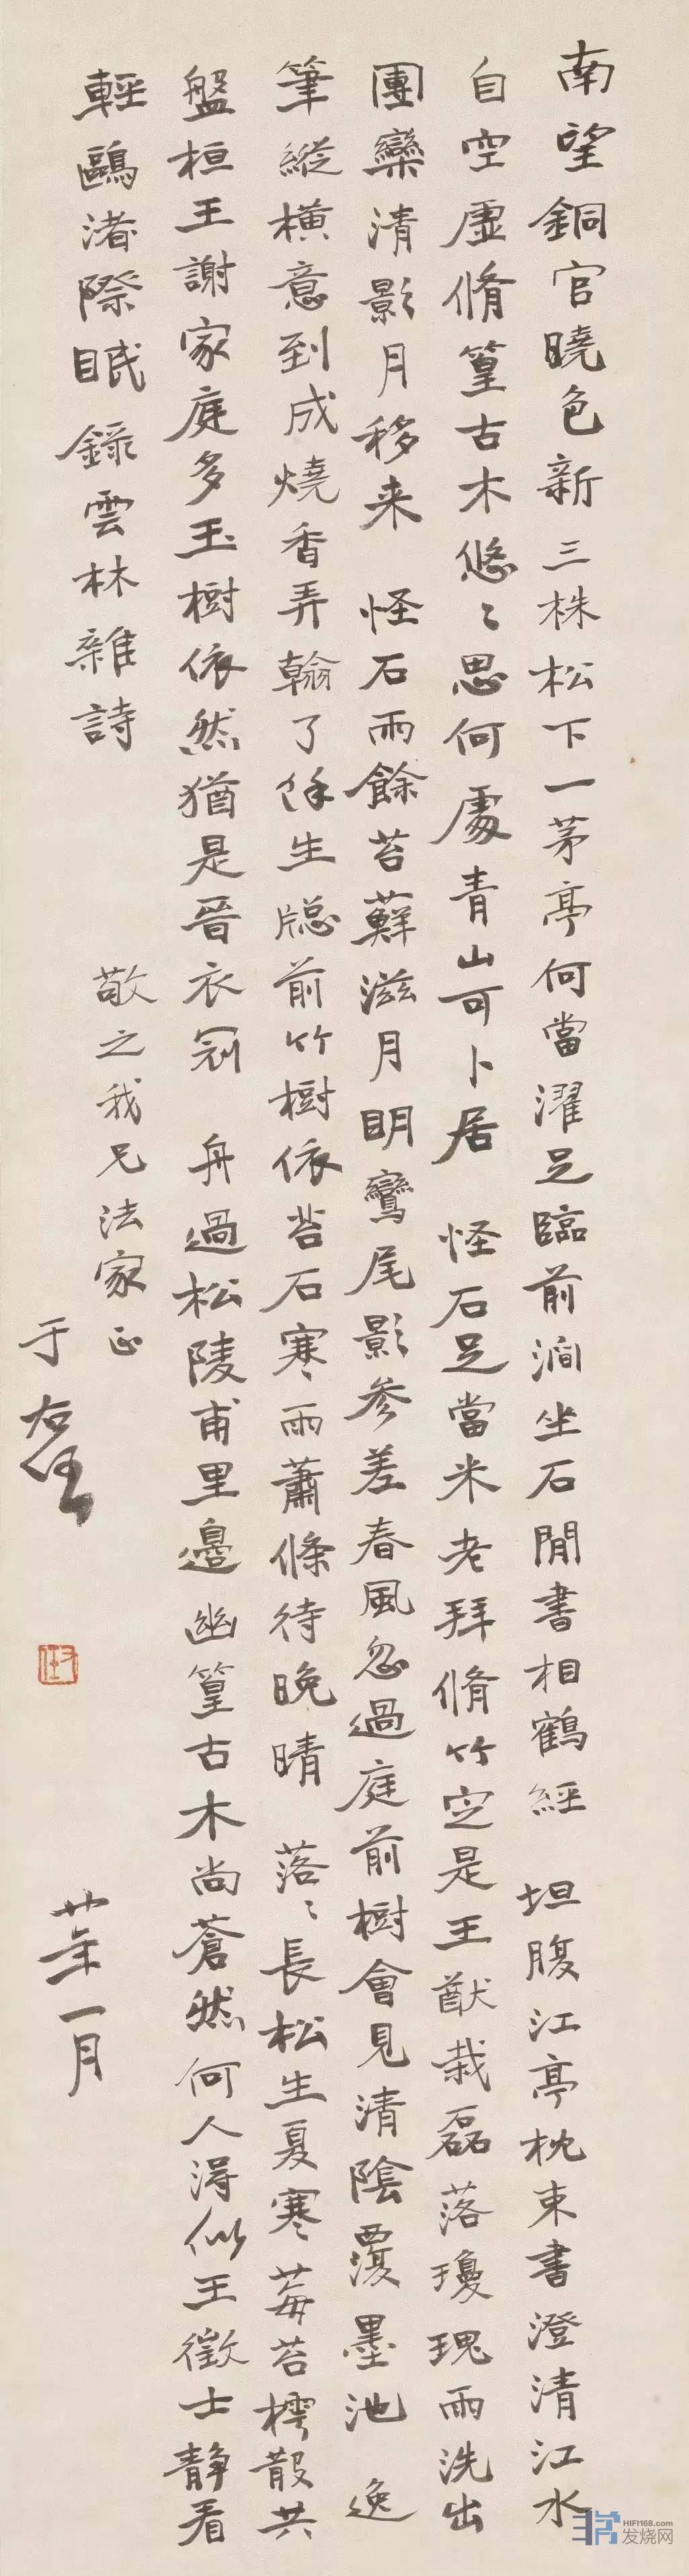 南望銅官曉色新三株松下一茅亭何當濯足臨前澗坐石閒書相鶴經　坦腹江亭枕束書澄清江水
自空虛脩篁古木悠〻思何處青山可卜居　怪石足當米老拜脩竹定是王猷栽磊落瓊瑰雨洗出
團欒清影月移来　怪石雨餘苔蘚滋月明鸞尾影参差春風忽過庭前樹會見清陰覆墨池　逸
筆縱橫意到成燒香弄翰了餘生牕前竹樹依苔石寒雨蕭條待晚晴　落〻長松生夏寒莓苔樗散共
盤桓王謝家庭多玉樹依然猶是晉衣冠　舟過松陵甫里邊幽篁古木尚蒼然何人得似王徵士靜看
輕鷗渚際眠　錄雲林雜詩
敬之我兄法家正
于右任
廿年一月
HIFI168.com
发烧网